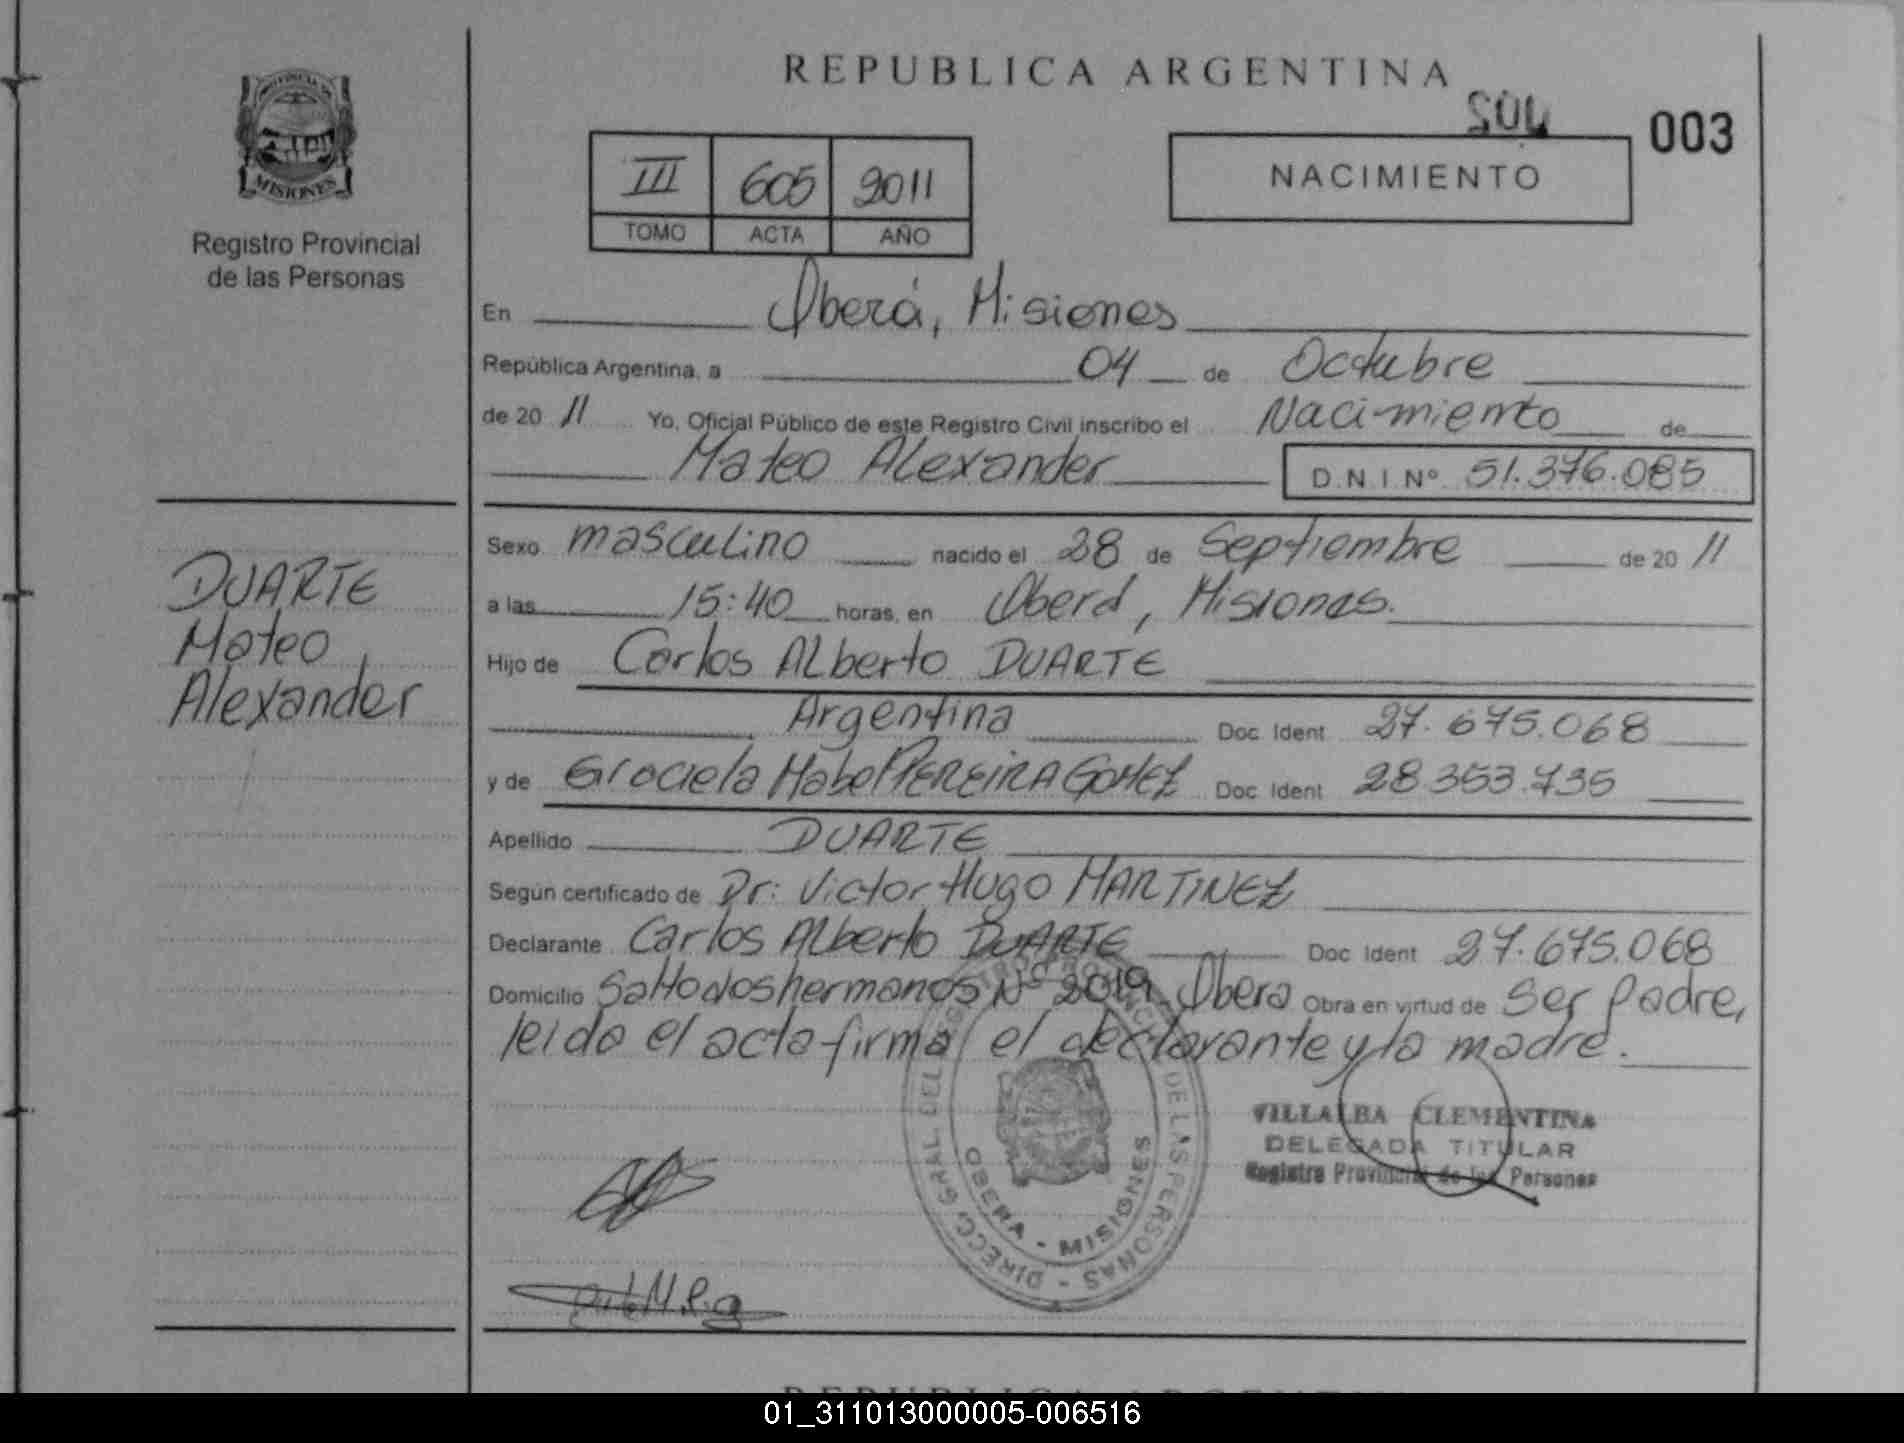 REPUBLICA ARGENTINA
003
PROVINCIA DE
MISIONES
Registro Provincial
de las Personas
III 605 2011
TOMO ACTA AÑO
NACIMIENTO
En Oberá, Misiones
República Argentina, a 04 de Octubre
de 20 11 Yo, Oficial Público de este Registro Civil inscribo el Nacimiento de
Mateo Alexander D.N.I.Nº 51.376.085
DUARTE
Mateo
Alexander
Sexo masculino nacido el 28 de Septiembre de 20 11
a las 15:40 horas, en Oberá, Misiones.
Hijo de Carlos Alberto DUARTE
Argentina Doc. Ident 27.675.068
y de Graciela Mabel PEREIRA GOMEZ Doc. Ident 28.353.735
Apellido DUARTE
Según certificado de Dr: Victor Hugo MARTINEZ
Declarante Carlos Alberto DUARTE Doc Ident 27.675.068
Domicilio Salto dos hermanos Nº 2019 Oberá Obra en virtud de Ser Padre,
leido el acta firma el declarante y la madre.
VILLALBA CLEMENTINA
DELEGADA TITULAR
Registro Provincial de las Personas
DIRECC. GRAL. DEL REGISTRO PROVINCIAL DE LAS PERSONAS -
OBERA - MISIONES
REPUBLICA ARGENTINA
01_311013000005-006516